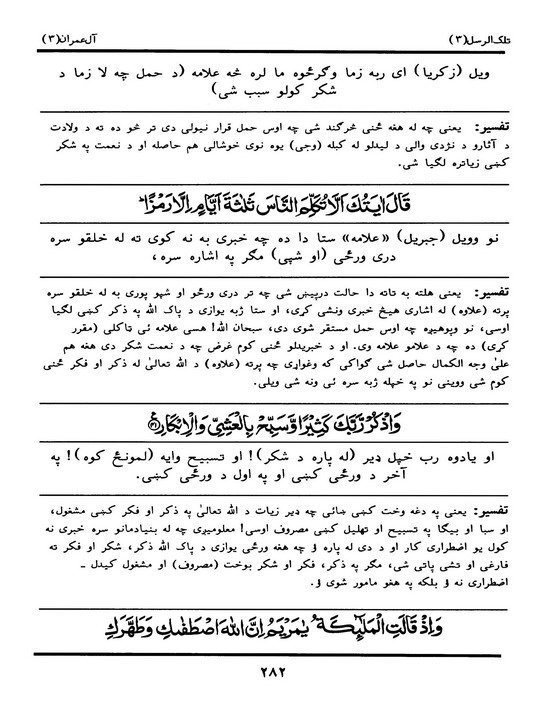 تلک الرسل(۳) آل عمران(۳)
ویل (زکریا) ای ربه زما وګرځوه ما لره څه علامه (د حمل چه لا زما د
شکر کولو سبب شی)
تفسیر: یعنی چه له هغه څنی څرګند شی چه اوس حمل قرار نیولی دی تر څو ده ته د ولادت
د آثارو د نژدی والی د لیدلو له کبله (وجی) یوه نوی خوشالی هم حاصله او د نعمت په شکر
کښی زیاتره لګیا شی.
قَالَ اٰيَتُكَ اَلَّا تُكَلِّمَ النَّاسَ ثَلٰثَةَ اَيَّامٍ اِلَّا رَمْزًا ؕ
نو وویل (جبریل) «علامه» ستا دا ده چه خبری به نه کوی ته له خلقو سره
دری ورځی (او شپی) مګر په اشاره سره،
تفسیر: یعنی هلته به تاته دا حالت درپیښ شی چه تر دری ورځو او شپو پوری به له خلقو سره
پرته (علاوه) له اشاری هیڅ خبری ونشی کری، او ستا ژبه یوازی د پاک الله په ذکر کښی لګیا
اوسی، نو وپوهیږه چه اوس حمل مستقر شوی دی، سبحان الله! هسی علامه ئی ټاکلی (مقرر
کری) ده چه د علامو علامه وی. او د خبریدلو څنی کوم غرض چه د نعمت شکر دی هغه هم
علیٰ وجه الکمال حاصل شی ګواکی که وغواړی چه پرته (علاوه) د الله تعالیٰ له ذکر او فکر څنی
کوم شی ووینی نو په خپله ژبه سره ئی ونه شی ویلی.
وَاذْكُرْ رَّبَّكَ كَثِيْرًا وَّسَبِّحْ بِالْعَشِيِّ وَالْاِبْكَارِ
او یادوه رب خپل ډیر (له پاره د شکر)! او تسبیح وایه (لمونځ کوه)! په
آخر د ورځی کښی او په اول د ورځی کښی.
تفسیر: یعنی په دغه وخت کښی ښائی چه ډیر زیات د الله تعالیٰ په ذکر او فکر کښی مشغول،
او سبا او بیګا په تسبیح او تهلیل کښی مصروف اوسی! معلومیږی چه له بنیادمانو سره خبری نه
کول یو اضطراری کار او د دی له پاره ؤ چه هغه ورځی یوازی د پاک الله ذکر، شکر او فکر ته
فارغی او تشی پاتی شی، مګر په ذکر، فکر او شکر بوخت (مصروف) او مشغول کیدل ـ
اضطراری نه ؤ بلکه په هغو مامور شوی ؤ.
وَاِذْ قَالَتِ الْمَلٰٓئِكَةُ يٰمَرْيَمُ اِنَّ اللّٰهَ اصْطَفٰىكِ وَطَهَّرَكِ
۲۸۲